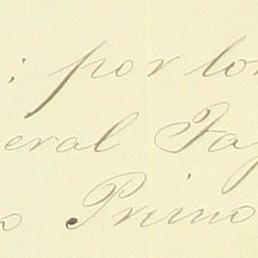 ; por lo
eral Fa
o Primo